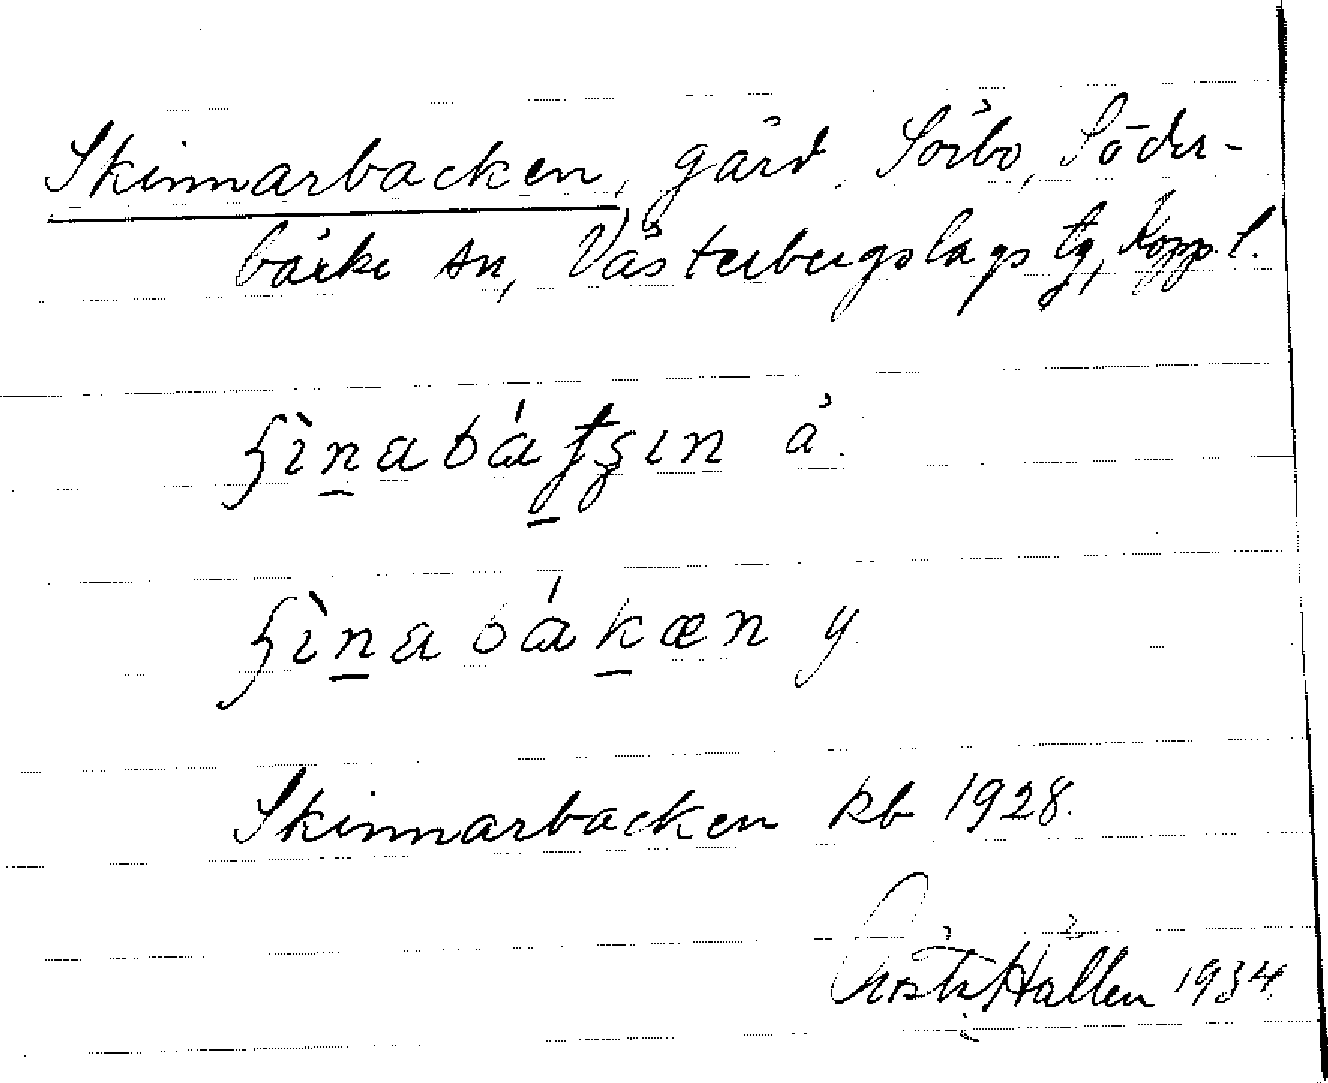 Skinnarbacken, gård, Sörbo, Söder-
bärke sn, Västerbergslags tg, Kopp. l.
ʃìn̠abát̠ʂɩn ä.
ʃìn̠abák̠æn y
Skinnarbacken kb 1928.
Gösta Hallén 1934.